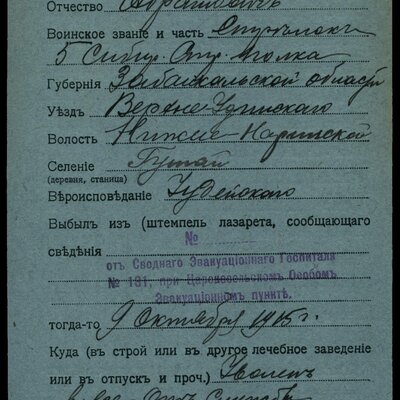 Отчество Абрамовичъ
Воинское званіе и часть Стрѣлокъ
5 Сибир. Стр. полка
Губернія Забайкальской области
Уѣздъ Верхне-Удинскаго
Волость Нижне-Нарымской
Селеніе
(деревня, станица)
Вѣроисповѣданіе Іудейскаго
Выбылъ изъ (штемпель лазарета, сообщающаго
№
свѣдѣнія
отъ Своднаго Эвакуаціоннаго Госпиталя
№ 131, при Царскосельскомъ Особомъ
Эвакуаціонномъ пунктѣ.
тогда-то 9 Октября 1915 г.
Куда (въ строй или въ другое лечебное заведеніе
или въ отпускъ и проч.) Уволенъ